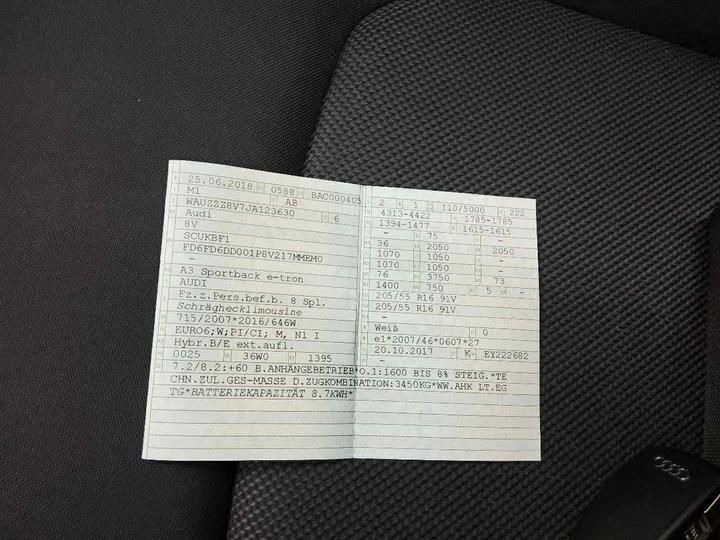 25.06.2018 0588 BAC000405
M1 AB
WAUZZZ8V7JA123630 6
Audi
8V
SCUKBF1
FD6FD6DD001P8V217MMEM0
-
A3 Sportback e-tron
AUDI
Fz.z.Pers.bef.b. 8 Spl.
Schräghecklimousine
715/2007*2016/646W
EURO6;W;PI/CI; M, N1 I
Hybr.B/E ext.aufl.
0025 36W0 1395
7.2/8.2:+60 B.ANHÄNGEBETRIEB*O.1:1600 BIS 8% STEIG.*TE
CHN.ZUL.GES-MASSE D.ZUGKOMBINATION:3450KG*WW.AHK LT.EG
TG*BATTERIEKAPAZITÄT 8.7KWH*
2 1 110/5000 222
4313-4422 1785-1785
1394-1477 1615-1615
- 75 -
36 2050 2050
1070 1050 -
1070 1050 -
76 3750 73
1400 750 5 -
205/55 R16 91V
205/55 R16 91V
-
Weiß 0
e1*2007/46*0607*27
20.10.2017 K EY222682
-